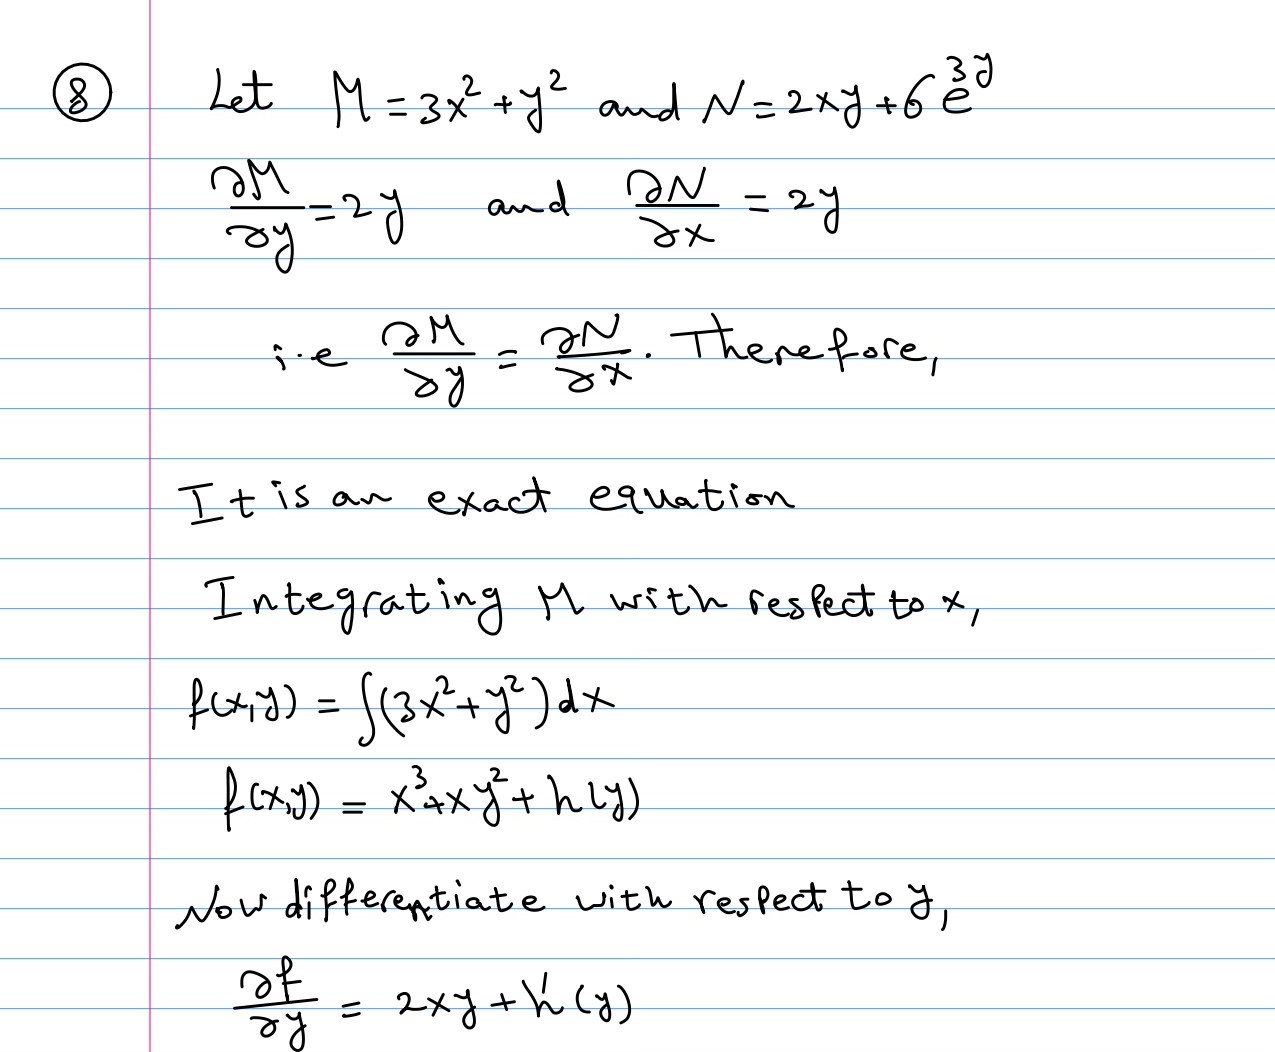 ⑧ Let M = 3x² + y² and N = 2xy + 6e³ʸ
∂M/∂y = 2y and ∂N/∂x = 2y
i.e ∂M/∂y = ∂N/∂x. Therefore,
It is an exact equation
Integrating M with respect to x,
f(x,y) = ∫(3x² + y²)dx
f(x,y) = x³ + xy² + h(y)
Now differentiate with respect to y,
∂f/∂y = 2xy + h'(y)